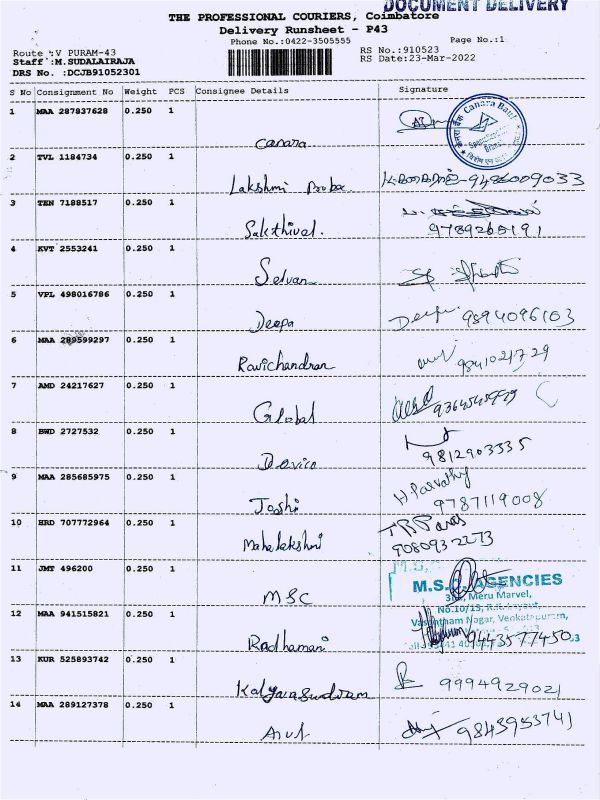 DOCUMENT DELIVERY
THE PROFESSIONAL COURIERS, Coimbatore
Delivery Runsheet - P43
Phone No.:0422-3505555 Page No.:1
Route :V PURAM-43 RS No.:910523
Staff :M.SUDALAIRAJA RS Date:23-Mar-2022
DRS No. :DCJB91052301
S No Consignment No Weight PCS Consignee Details Signature
1 MAA 287837628 0.250 1
Canara
Canara Bank
2 TVL 1184734 0.250 1
Lakshmi 9486009033
3 TEN 7188517 0.250 1
Sakthival. 9789265191
4 KVT 2553241 0.250 1
Selvan
5 VPL 498016786 0.250 1
Deepa Deepa 9894096103
6 MAA 289599297 0.250 1
Ravichandran 9841021729
7 AMD 24217627 0.250 1
Global
8 BWD 2727532 0.250 1
9812903335
9 MAA 285685975 0.250 1
Joshi H Parvathy
9787119008
10 HRD 707772964 0.250 1
Mahalakshmi
11 JMT 496200 0.250 1
MSC
AGENCIES
Meru Marvel,
No.10/15,
Vasantham Nagar, Venkatapuram,
12 MAA 941515821 0.250 1
Radhamani 9443577450
13 KUR 525893742 0.250 1
Kalyanasundram 9994929021
14 MAA 289127378 0.250 1
Arul 9843953741